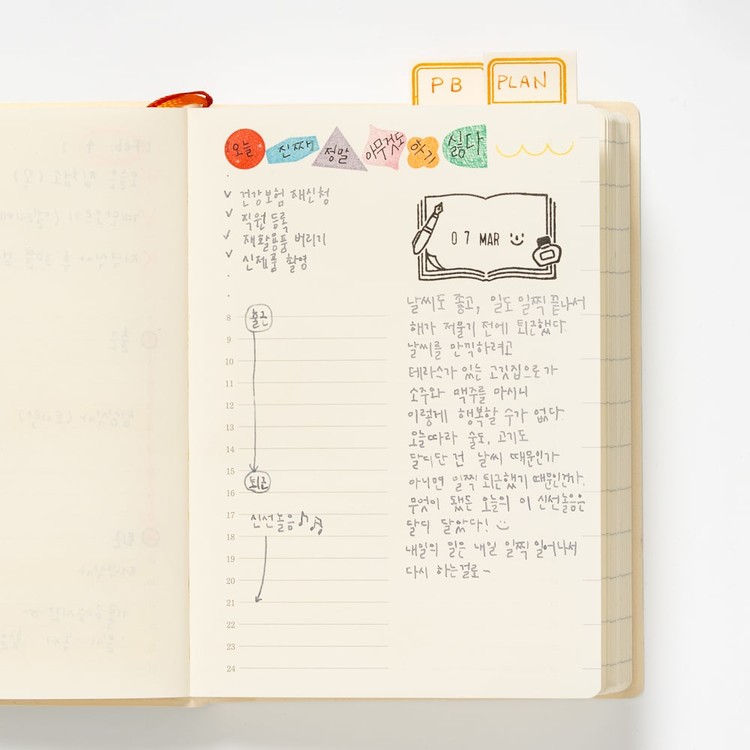 PB
PLAN
오늘 진짜 정말 아무것도 하기 싫다
✓ 건강보험 재신청
✓ 직원 등록
✓ 재활용품 버리기
✓ 신제품 촬영
07 MAR
8 출근
9
10
11
12
13
14
15 퇴근
16
17 신선놀음
18
19
20
21
22
23
24
날씨도 좋고, 일도 일찍 끝나서
해가 저물기 전에 퇴근했다.
날씨를 만끽하려고
테라스가 있는 고깃집으로 가
소주와 맥주를 마시니
이렇게 행복할 수가 없다.
오늘따라 술도, 고기도
달디단 건 날씨 때문인가
아니면 일찍 퇴근했기 때문인건가.
무엇이 됐든 오늘의 이 신선놀음은
달디 달았다!
내일의 일은 내일 일찍 일어나서
다시 하는걸로~